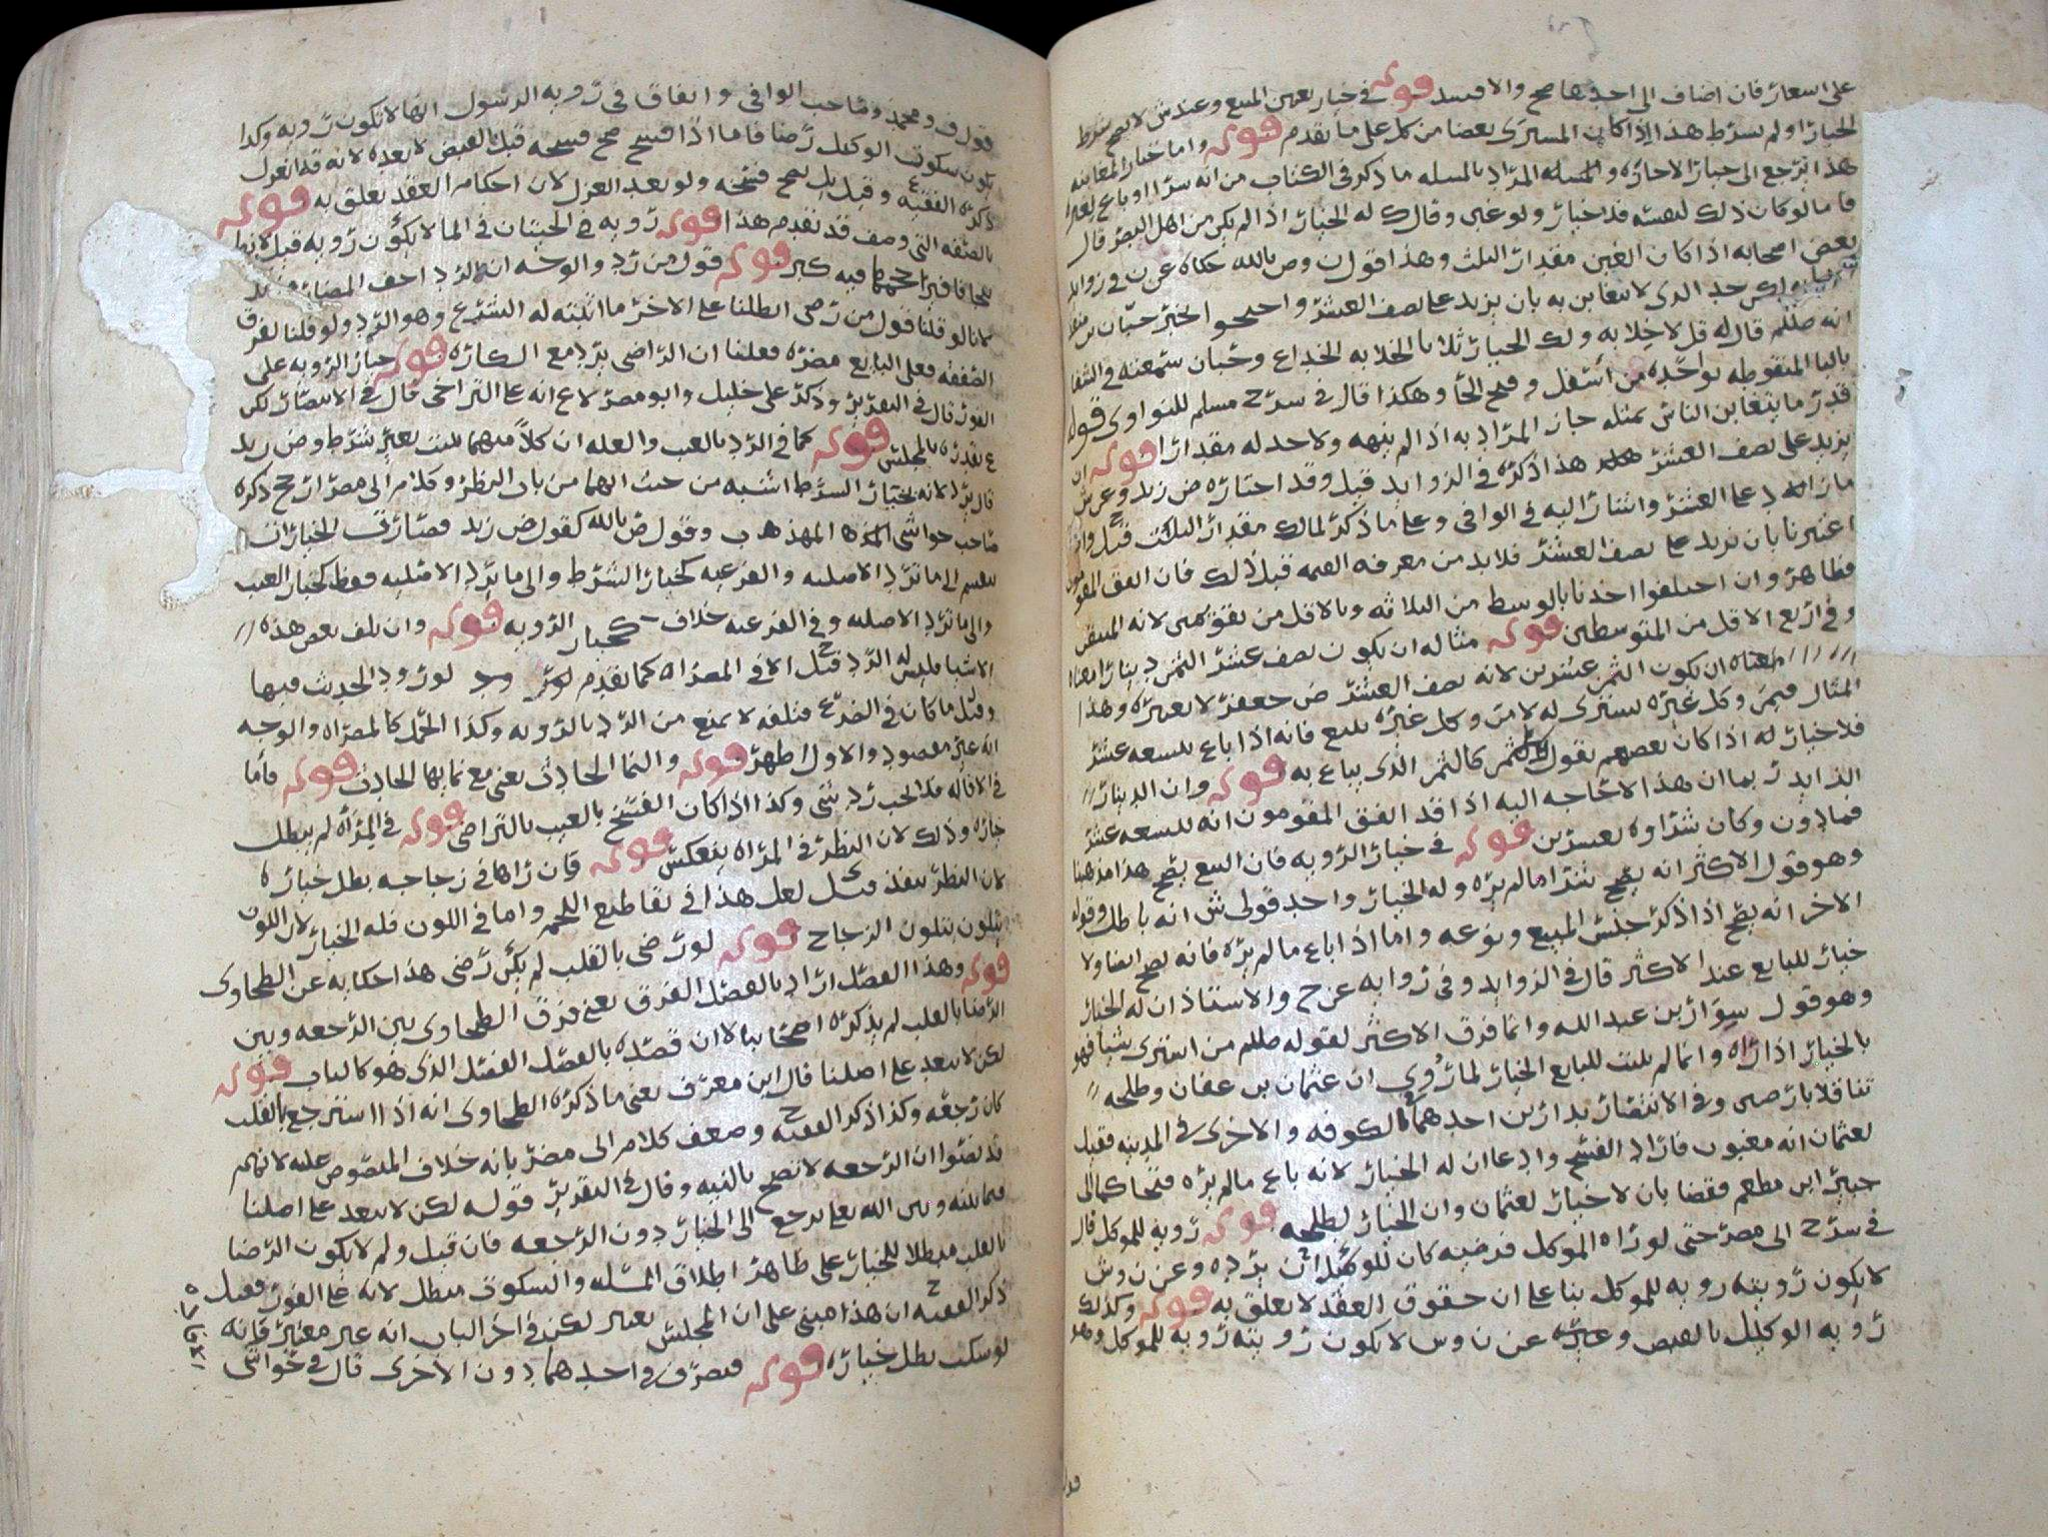 على اسعار فان اضاف الى احدها صح والا فسد قوله في خيار تعيين المبيع وعندش لا يصح شرط
الخيار او لم يشرط هذا اذا كان المشترى بعضا من كل على ما تقدم قوله واما خيار المغابنه
هذا يرجع الى خيار الاجازه والمسله المراد بالمسله ما ذكر في الكتاب من انه شرا او باع لغيره
فاما لو كان ذلك لنفسه فلا خيار ولو غبن وقال ك له الخيار اذا لم يكن من اهل البصر قال
بعض اصحابه اذا كان الغبن مقدار الثلث وهذا قول ن وص بالله حكاه عن ن في زوايد
حد الذى لا يتغابن به بان يزيد على نصف العشر واحتجوا بخبر حبان بن منقذ
انه صللم قال له قل لا خلابه ولك الخيار ثلاثا الخلابه الخداع وحبان سمعته في الشفا
باليا المنقوطه بواحده من اسفل وفتح الحا وهكذا قال في شرح مسلم للنواوى قوله
قدر ما يتغابن الناس بمثله جاز المراد به اذا لم ينهه ولا حد له مقدارا قوله ان
يزيد على نصف العشر هذا ذكره في الزوايد قيل وقد اختاره ض زيد وعن ش
ما زاد على العشر واشار اليه في الوافي وعلى ما ذكر لمالك مقدار الثلث قيل وان
اعتبرنا بان يزيد على نصف العشر فلا بد من معرفه القيمه قبل ذلك فان اتفق المقومون
فظاهر وان اختلفوا اخذنا بالوسط من الثلاثه وبالاقل من تقويمين لانه المتيقن
وفي اربع الاقل من المتوسطين قوله مثاله ان يكون نصف عشر الثمن دينارا
معناه ان يكون الثمن عشرين لانه نصف العشر ض جعفر لا يعتبره وهذا
المثال فيمن وكل غيره يشترى له لا من وكل غيره يبيع فانه اذا باع بتسعه عشر
فلا خيار له اذا كان بعضهم يقول الثمن كالثمن الذى يباع به قوله وان الدينار
الزايد ربما ان هذا لا حاجه اليه اذا قد اتفق المقومون انه بتسعه عشر
فما دون وكان شراوه بعشرين قوله في خيار الرويه فان البيع يصح هذا مذهبنا
وهو قول الاكثر انه يصح شرا ما لم يره وله الخيار واحد قولى ش انه باطل وقوله
الاخر انه يصح اذا ذكر جنس المبيع ونوعه واما اذا باع ما لم يره فانه يصح ايضا ولا
خيار للبايع عند الاكثر قال في الزوايد وفي روايه عن ح والاستاذ ان له الخيار
وهو قول سوار بن عبد الله وانما فرق الاكثر لقوله صللم من اشترى شيا فهو
بالخيار اذا راه وانما لم يثبت للبايع الخيار لما روي ان عثمان بن عفان وطلحه
تناقلا بارضين وفي الانتصار بدارين احدهما بالكوفه والاخرى في المدينه فقيل
لعثمان انه مغبون فاراد الفسخ وادعا ان له الخيار لانه باع ما لم يره فتحاكما الى
جبير ابن مطعم فقضا بان لا خيار لعثمان وان الخيار لطلحه قوله رويه للموكل قال
في شرح ابى مضر حتى لو راه الموكل فرضيه كان للوكيل ان يرده وعن ن وش
لا يكون رويته رويه للموكل بنا على ان حقوق العقد لا تعلق به قوله وكذلك
رويه الوكيل بالقبض وعن ن وس لا يكون رويته رويه للموكل وهو
قول ف ومحمد وصاحب الوافي واتفاق في رويه الرسول انها لا تكون رويه وكذا
يكون سكوت الوكيل رضا فاما اذا فسخ صح فسخه قبل القبض لا بعده لانه قد انعزل
ذكره الفقيه ع وقيل بل يصح فسخه ولو بعد العزل لان احكام العقد تعلق به قوله
بالصفه التى وصف قد تقدم هذا قوله رويه في الحيتان في الما لا يكون رويه قيل لانها
فيه كبر قوله قول من رد والوجه انه الرد احف
لانا لو قلنا قول من رضى ابطلنا على الاخر ما اثبته له الشرع وهو الرد ولو قلنا لفرق
الصفقه فعلى البايع مضره فعلنا ان الراضى يرد مع الكاره قوله خيار الرويه على
الفور قال في التقرير وذكر على خليل وابو مضر لا ع انه على التراخى قال في الانتصار لكن
ع يقدره بالمجلس قوله كما في الرد بالعيب والعله ان كلا منهما يثبت بغير شرط وض زيد
قال يرد لانه بخيار الشرط اشبه من حيث انهما من باب النظر وكلام ابى مضر ارجح ذكره
صاحب حواشى المهذب وقول ض بالله كقول ض زيد فصارت الخيارات
تنقسم الى ما ترد الاصليه والفرعيه كخيار الشرط والى ما ترد الاصليه فقط كخيار العيب
والى ما ترد الاصليه وفي الفرعيه خلاف كخيار الرويه قوله وان تلف بعض هذه
الاشيا فليس له الرد قيل الا في المصراه كما تقدم لورود الحديث فيها
وقيل ما كان في الضرع فتلفه لا يمنع من الرد بالرويه وكذا الحمل كالمصراه والوجه
انه غير مقصود والاول اظهر قوله والنما الحادث يعنى مع نمايها الحادث قوله فاما
في الاقاله فلا يجب رد شى وكذا اذا كان الفسخ بالعيب بالتراضى قوله في المراه لم يبطل
خياره وذلك لان النظر في المراه ينعكس قوله فان راها في زجاجه بطل خياره
لان النظر ينفذ قيل لعل هذا في تقاطيع اللحم واما في اللون فله الخيار لان اللون
يتلون بتلون الزجاج قوله لو رضى بالقلب لم يكن رضى هذا حكايه عن الطحاوى
قوله وهذا الفصل اراد بالفصل الفرق يعنى فرق الطحاوى بين الرجعه وبين
الرضا بالقلب لم يذكره اصحابنا لا ان قصده بالفصل الفصل الذى هو كالباب قوله
لكن لا يبعد على اصلنا قال ابن معرف يعنى ما ذكره الطحاوى انه اذا استرجع بالقلب
كان رجعه وكذا ذكر الفقيه ح وضعف كلام ابى مضر بانه خلاف المنصوص عليه لانهم
قد نصوا ان الرجعه لا تصح بالنيه وقال في التقرير قوله لكن لا يبعد على اصلنا
فيما بينه وبين الله تعلى يرجع الى الخيار دون الرجعه فان قيل ولم لا يكون الرضا
بالقلب مبطلا للخيار على ظاهر اطلاق المسله والسكوت مبطل لانه على الفور فقيل
ذكر الفقيه ح ان هذا مبنى على ان المجلس يعتبر لكن في اخر الباب انه غير معتبر فانه
لو سكت بطل خياره قوله فتصرف في احدهما دون الاخرى قال في حواشى